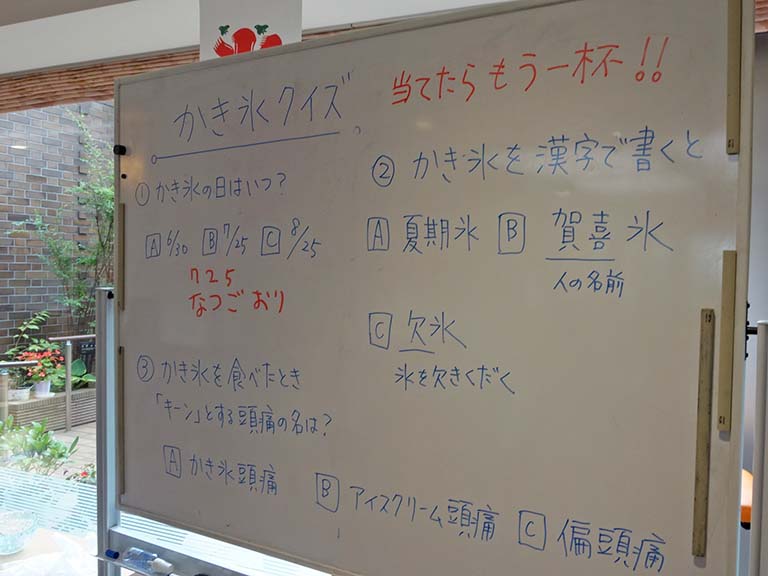 かき氷クイズ
当てたらもう一杯!!
① かき氷の日はいつ?
A 6/30 B 7/25 C 8/25
725
なつごおり
② かき氷を漢字で書くと
A 夏期氷 B 賀喜氷
人の名前
C 欠氷
氷を欠きくだく
③ かき氷を食べたとき
「キーン」とする頭痛の名は?
A かき氷頭痛
B アイスクリーム頭痛 C 偏頭痛